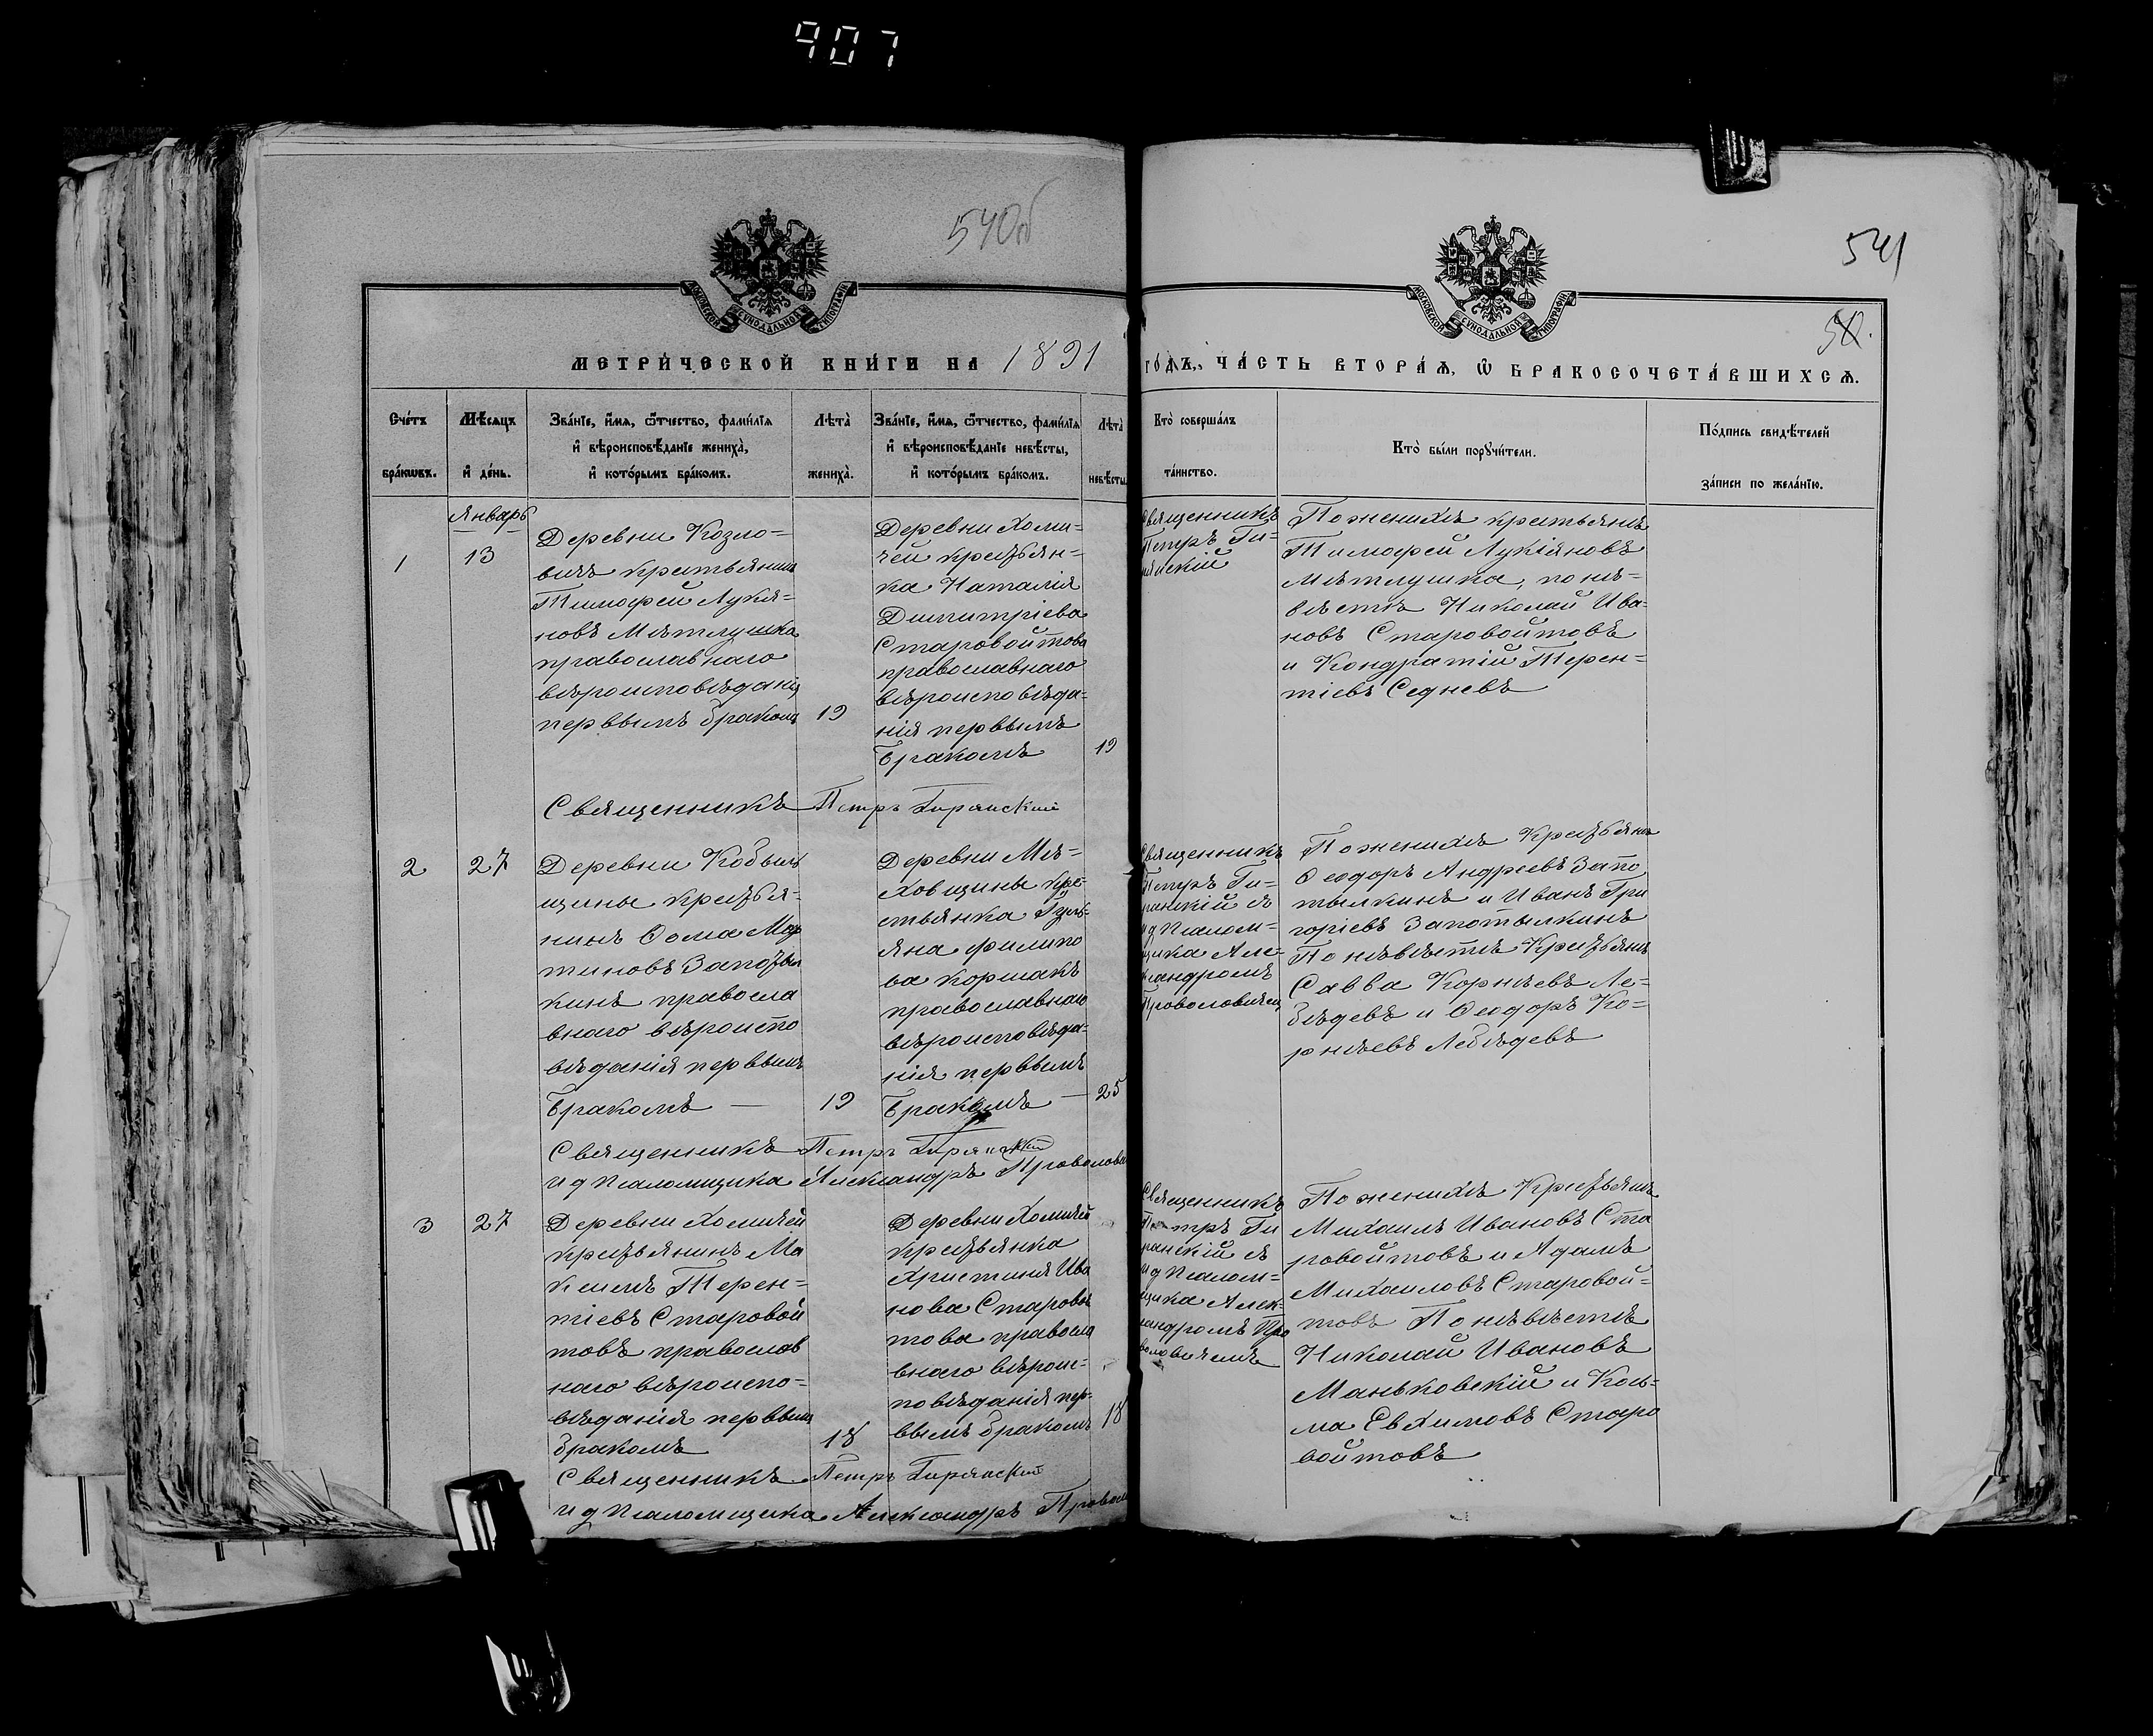 907
540об
541
50.
МОСКОВСКОЙ СѴНОДАЛЬНОЙ ТИПОГРАФІИ
МОСКОВСКОЙ СѴНОДАЛЬНОЙ ТИПОГРАФІИ
МЕТРИ́ЧЕСКОЙ КНИ́ГИ НА 1891
ГО́ДЪ, ЧА́СТЬ ВТОРА́Ѧ, Ѡ҆ БРАКОСОЧЕТА́ВШИХСѦ.
Сче́тъ
бра́кѡвъ.
Мѣ́сѧцъ
и҆ де́нь.
Зва́нїе, и҆́мѧ, ѻ҆́тчество, фами́лїѧ
и҆ вѣроисповѣ́данїе жениха̀,
и҆ кото́рымъ бра́комъ.
Лѣ́та̀
жениха̀.
Зва́нїе, и҆́мѧ, ѻ҆́тчество, фами́лїѧ
и҆ вѣроисповѣ́данїе невѣ́сты,
и҆ кото́рымъ бра́комъ.
Лѣ́та̀
невѣ́сты.
Кто̀ соверша́лъ
та́инство.
Кто̀ бы́ли порꙋчи́тели.
По́дпись свидѣ́телей
за́писи по жела́нїю.
Январь
1
13
Деревни Козло-
вичъ крестьянинъ
Тимофей Лукья-
новъ Мѣтлушка
православнаго
вѣроисповѣданія
первымъ бракомъ
19
Деревни Хоми-
чей крестьян-
ка Наталія
Димитріева
Старовойтова
православнаго
вѣроисповѣда-
нія первымъ
бракомъ
19
Священникъ
Петръ Ги-
рянскій
По женихѣ крестьянъ
Тимофей Лукіяновъ
Мѣтлушка, по не-
вѣстѣ Николай Ива-
новъ Старовойтовъ
и Кондратій Терен-
тіевъ Седневъ
Священникъ Петръ Гирянскій
2
27
Деревни Кобыль
щины крестья-
нинъ Ѳома Мар
тиновъ Запотыл
кинъ правосла
внаго вѣроиспо
вѣданія первымъ
бракомъ —
19
Деревни Мѣ-
ховщины кре-
стьянка Гуль-
яна Филипо
ва Коршакъ
православнаго
вѣроисповѣда-
нія первымъ
бракомъ —
25
Священникъ
Петръ Ги-
рянскій съ
и д псалом-
щика Але-
ксандромъ
Проволовичемъ
По женихѣ Крестьянъ
Ѳеодоръ Андреевъ Запо
тылкинъ и Иванъ Гри
горіевъ Запотылкинъ
По невѣстѣ Крестьянъ
Савва Корнѣевъ Ле-
бѣдевъ и Ѳеодоръ Ко-
рнѣевъ Лебѣдевъ
Священникъ Петръ Гирянскій
и д псаломщика Александръ Проволови
3
27
Деревни Хомичей
крестьянинъ Ма
ксимъ Терен-
тіевъ Старовой
товъ православ
наго вѣроиспо-
вѣданія первымъ
бракомъ
18
Деревни Хомичей
крестьянка
Христина Ива
нова Старовой
това правосла
внаго вѣроис-
повѣданія пер-
вымъ бракомъ
18
Священникъ
Петръ Ги
рянскій съ
и д псалом-
щика Алек-
сандромъ Про
воловичемъ
По женихѣ Крестьянъ
Михаилъ Ивановъ Ста
ровойтовъ и Адамъ
Михаиловъ Старовой-
товъ По невѣстѣ
Николай Ивановъ
Маньковскій и Козь-
ма Евхимовъ Старо
войтовъ
Священникъ Петръ Гирянскій
и д псаломщика Александръ Провол